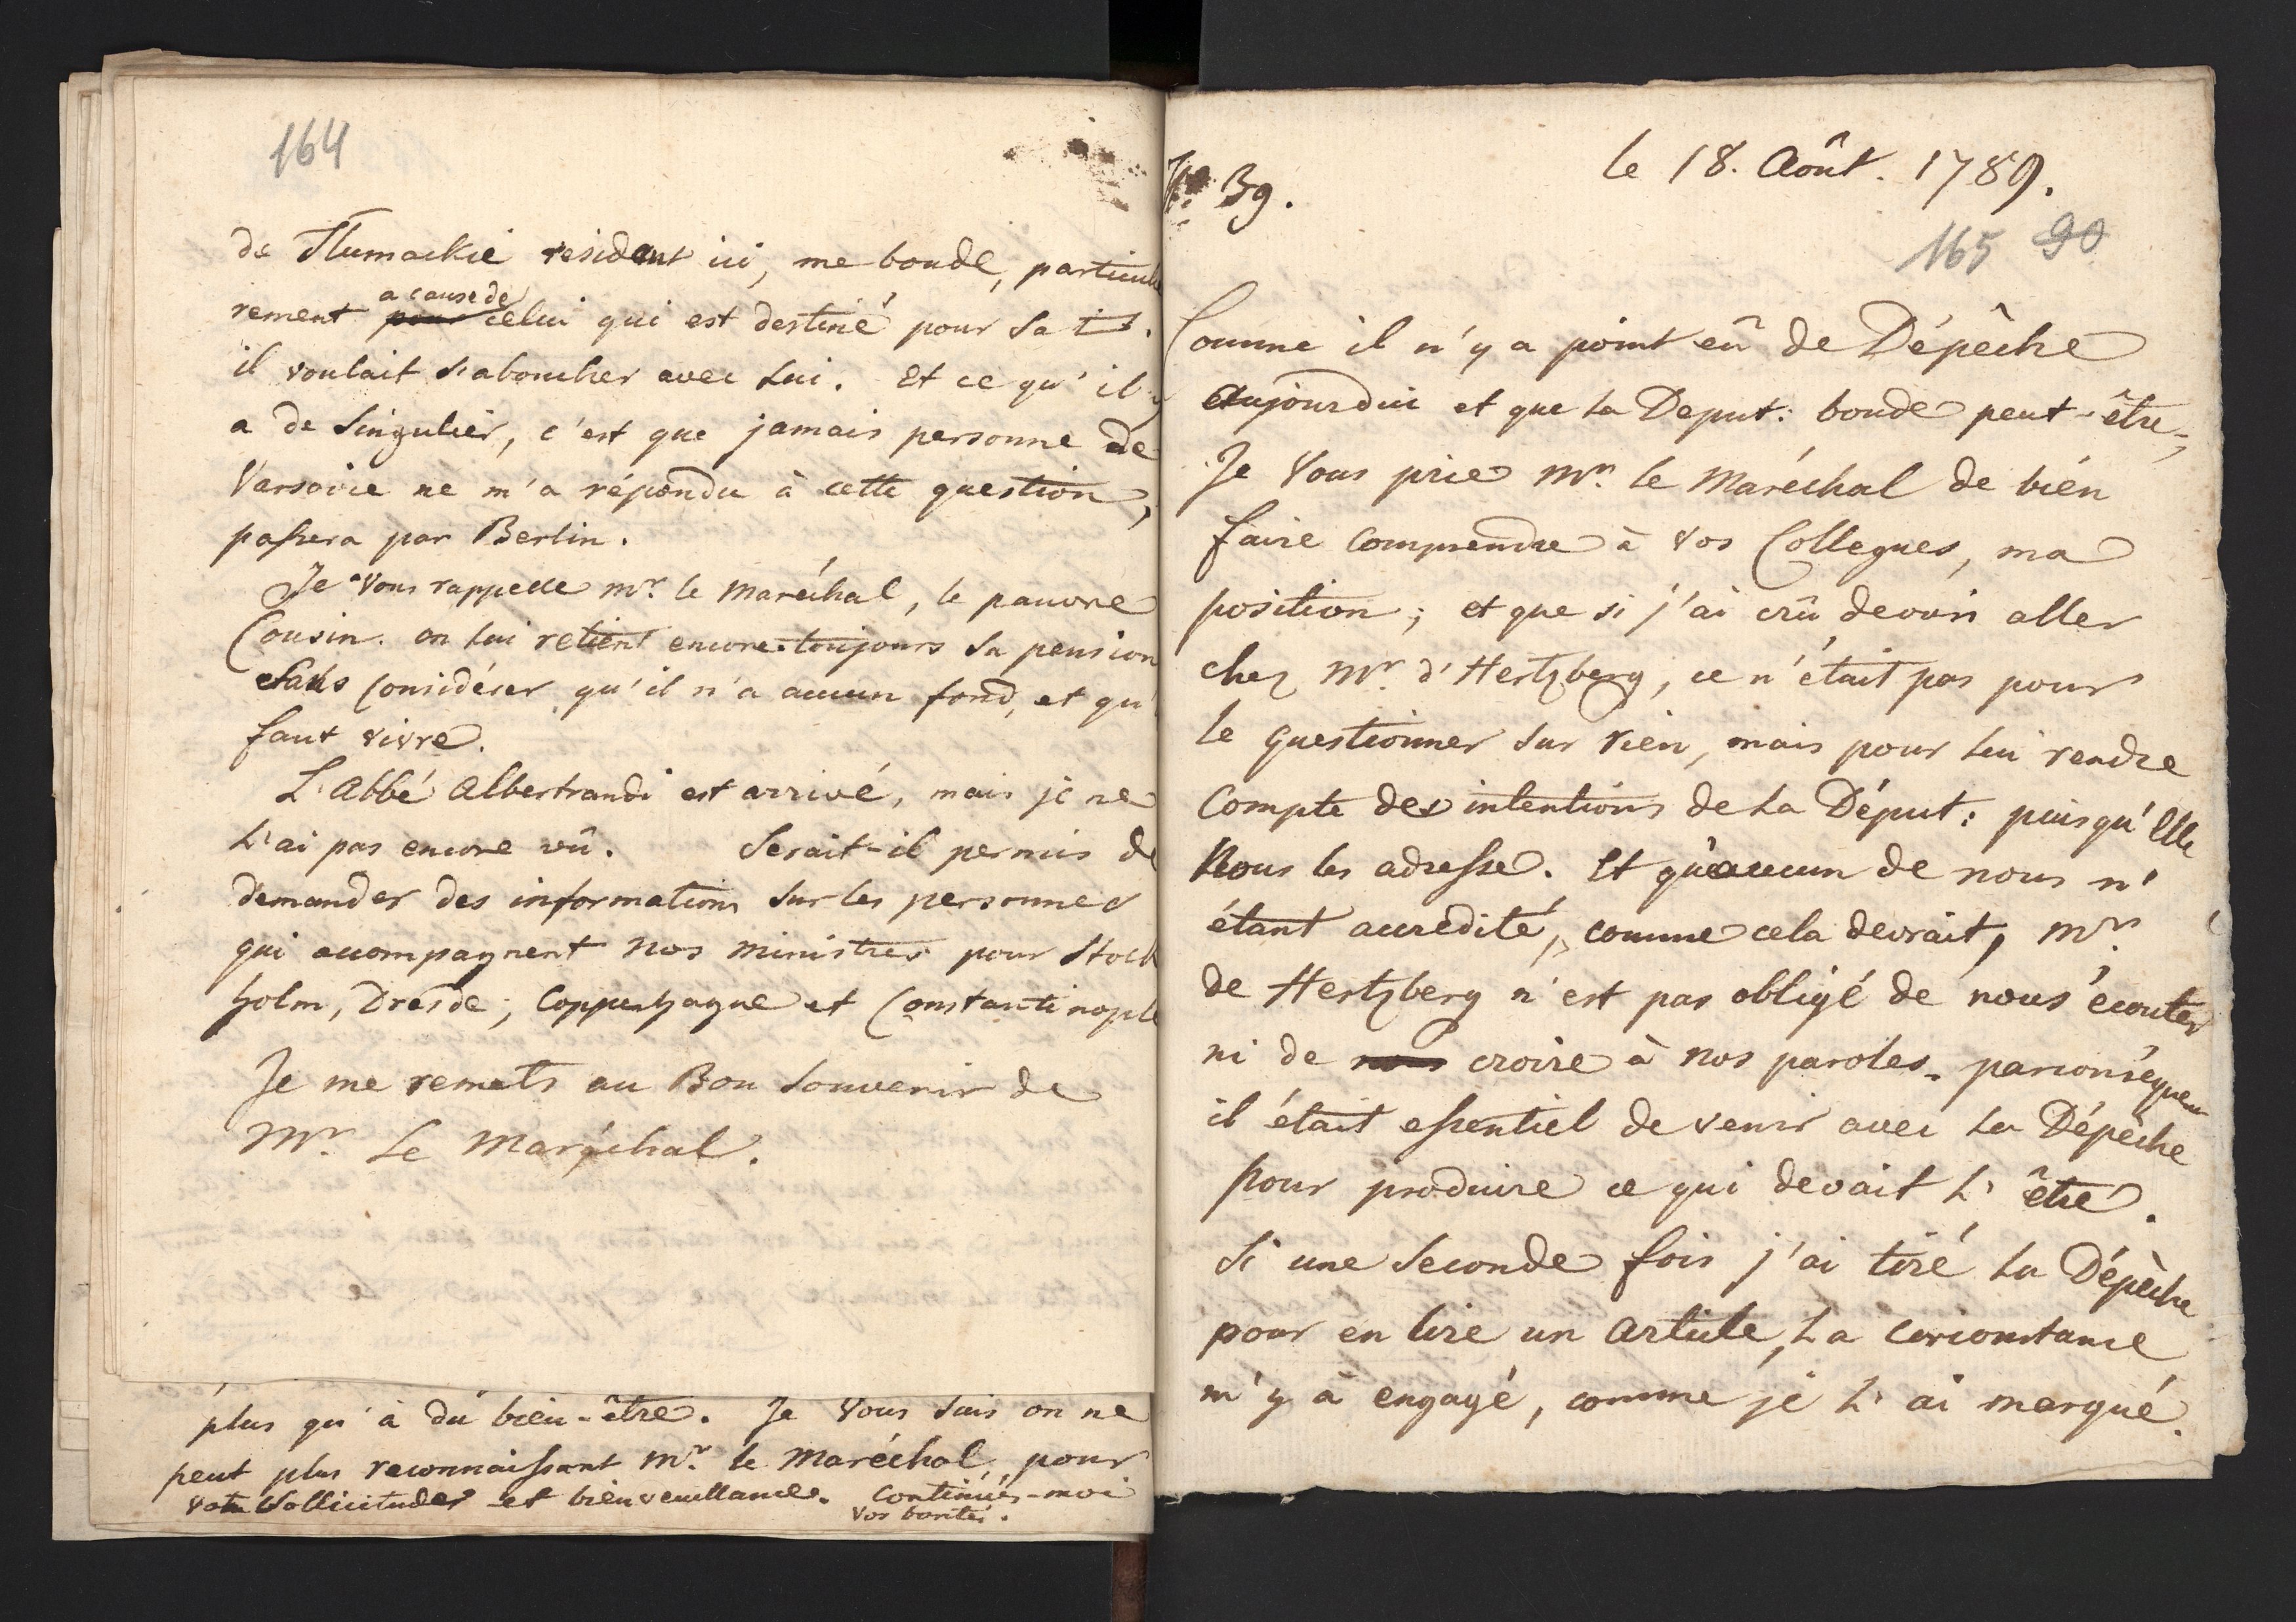 164
de Tlumackie resident ici, me boude, particul
rement a cause de pour celui qui est destiné pour
il voulait s'aboucher avec Lui. Et ce qu'il y
a de Singulier, c'est que jamais personne de
Varsovie ne m'a répondu à cette question,
passera par Berlin.
Je Vous rappelle Mr. le Maréchal, le pauvre
Cousin. on lui retient encore toujours sa pension
sans Considérer qu'il n'a aucun fond, et qu'
faut vivre.
L'Abbé Albertrandi est arrivé, mais je ne
L'ai pas encore vû. Serait-il permis de
demander des informations sur les personnes
qui accompagnent nos Ministres pour Stock
holm, Dresde; Coppenhague et Constantinople
Je me remets au Bon Souvenir de
Mr. Le Maréchal.
plus qu'à du bien-être. Je Vous suis on ne
peut plus reconnaissant Mr. le Maréchal, pour
votre Sollicitudes et bienveuillances. Continués-moi
vos bontés.
No. 39.
le 18. Août. 1789.
165 90
Comme il n'y a point eû de Dépêche
aujourdui et que la Deput: boude peut-être,
Je Vous prie Mr. le Maréchal de bién
faire Comprendre à vos Collegues, ma
position; et que si j'ai crû devoir aller
chez Mr. d'Hertzberg, ce n'était pas pour
le questionner sur rien, mais pour lui rendre
Compte des intentions de la Déput: puisqu'Elle
Nous les adresse. Et qu'aucun de nous n'
étant accredité, comme cela devrait, Mr.
de Hertzberg n'est pas obligé de nous écouter
ni de nous croire à nos paroles. parconséquen
il était essentiel de venir avec la Dépêche
pour produire ce qui devait L'être.
Si une Seconde fois j'ai tiré la Dépêche
pour en lire un Article, La Circonstance
m'y à engagé, comme je L'ai marqué.